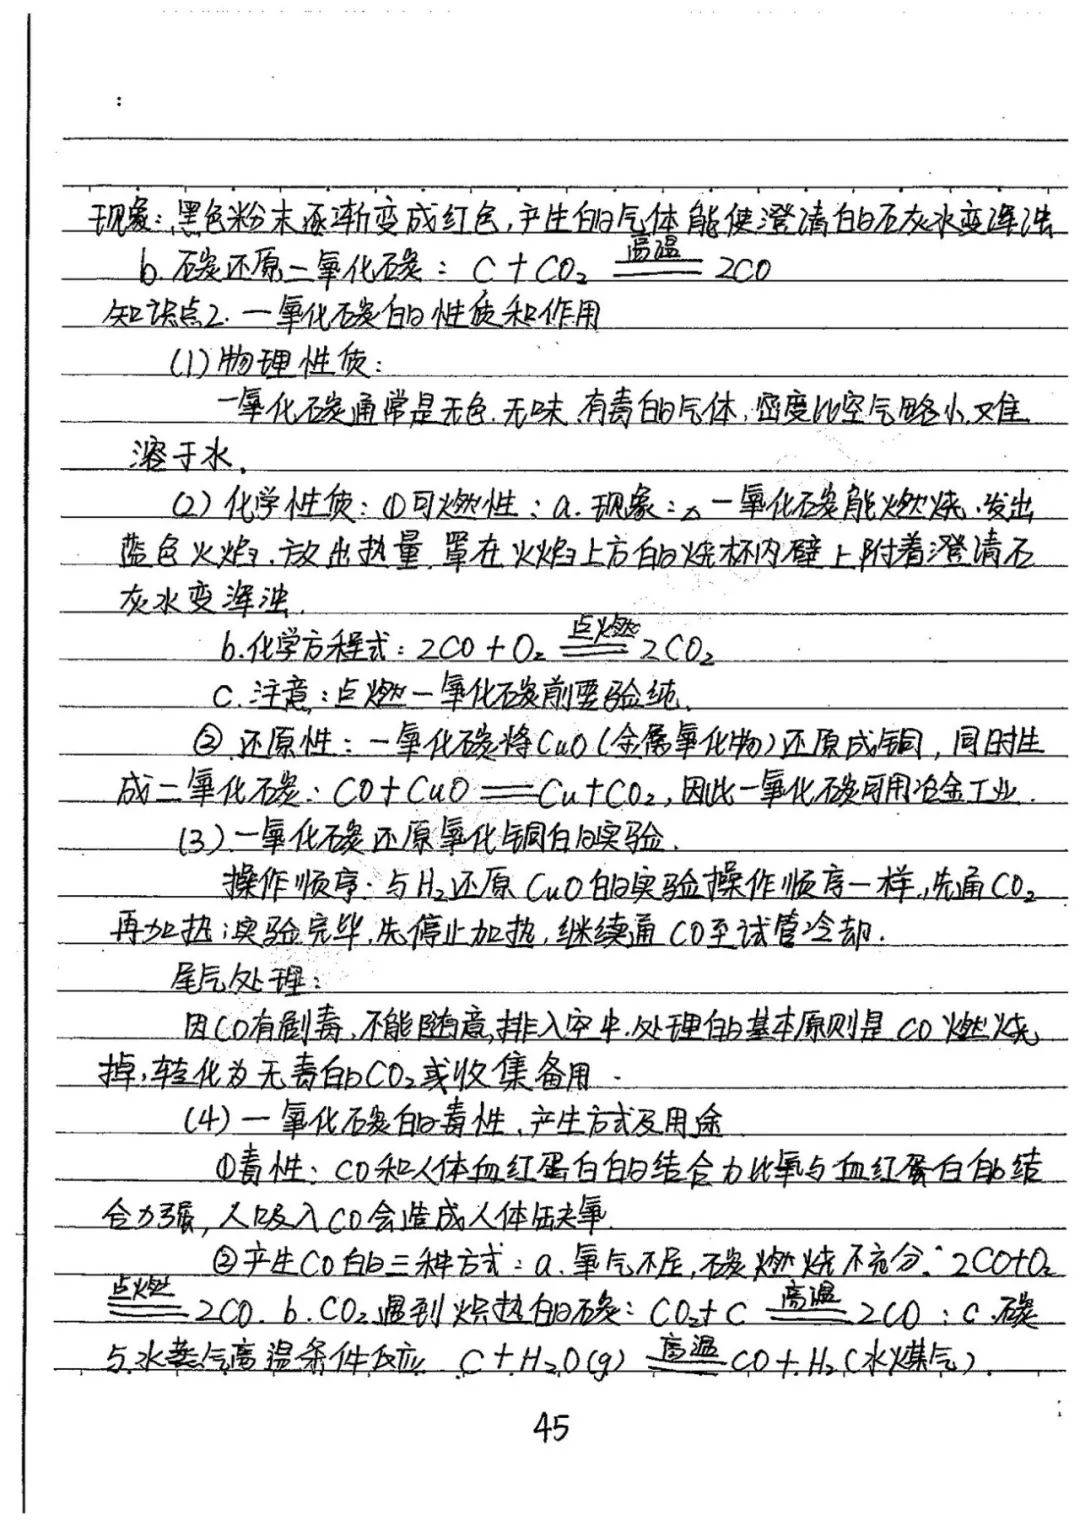 现象：黑色粉末逐渐变成红色，产生的气体能使澄清的石灰水变浑浊
b. 碳还原二氧化碳：C + CO₂ 高温══ 2CO
知识点2. 一氧化碳的性质和作用
(1) 物理性质：
一氧化碳通常是无色、无味、有毒的气体，密度比空气略小，难
溶于水。
(2) 化学性质：①可燃性：a. 现象：一氧化碳能燃烧，发出
蓝色火焰，放出热量，罩在火焰上方的烧杯内壁上附着澄清石
灰水变浑浊.
b. 化学方程式：2CO + O₂ 点燃══ 2CO₂
C. 注意：点燃一氧化碳前要验纯、
② 还原性：一氧化碳将CuO(金属氧化物)还原成铜，同时生
成二氧化碳：CO + CuO ══ Cu + CO₂，因此一氧化碳可用冶金工业.
(3) 一氧化碳还原氧化铜的实验.
操作顺序：与H₂还原CuO的实验操作顺序一样，先通CO₂
再加热；实验完毕，先停止加热，继续通CO至试管冷却.
尾气处理：
因CO有剧毒，不能随意排入空中，处理的基本原则是CO燃烧
掉，转化为无毒的CO₂或收集备用.
(4) 一氧化碳的毒性、产生方式及用途
①毒性：CO和人体血红蛋白的结合力比氧与血红蛋白的结
合力强，人吸入CO会造成人体缺氧
②产生CO的三种方式：a. 氧气不足，碳燃烧不充分：2CO+O₂
点燃══ 2CO. b. CO₂遇到炽热的碳：CO₂+C 高温══ 2CO；c. 碳
与水蒸气高温条件反应 C + H₂O(g) 高温══ CO + H₂(水煤气)
45